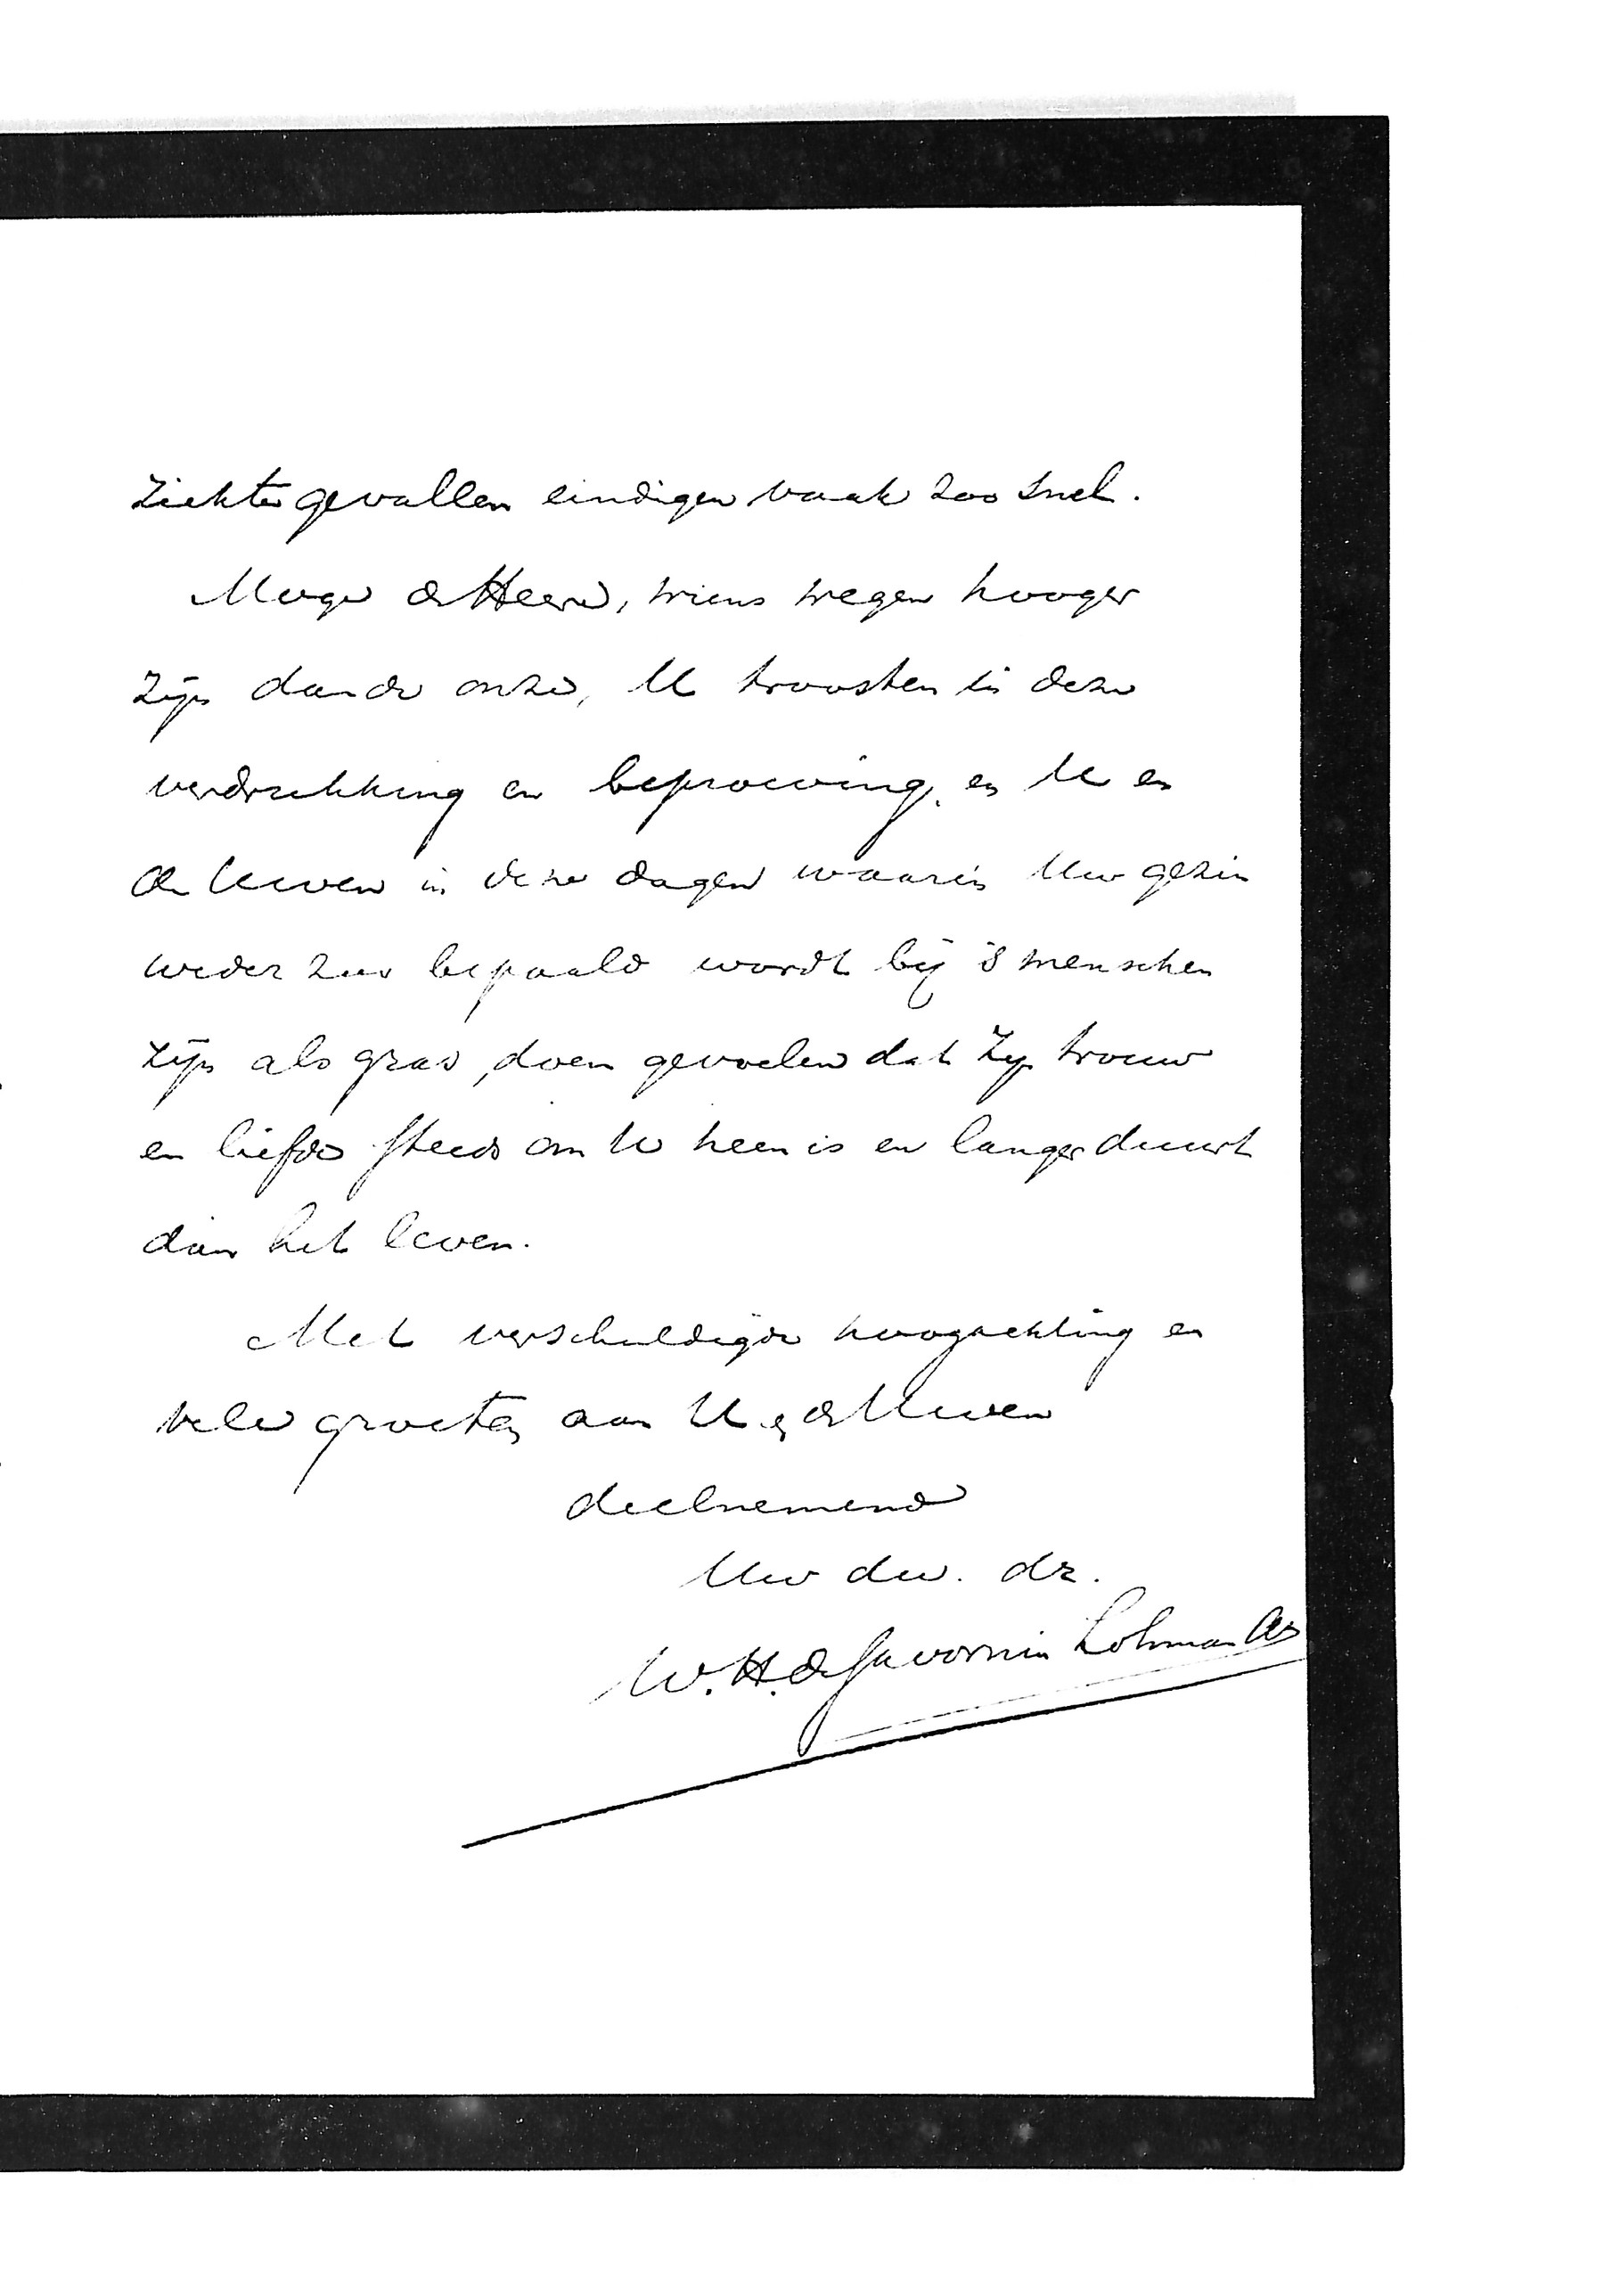 ziektegevallen eindigen vaak zoo snel.
Moge de Heere, wiens wegen hooger
zijn dan de onze, U troosten in deze
verdrukking en beproeving, en U en
de Uwen in deze dagen waarin Uw gezin
weder zoo bepaald wordt bij 's menschen
zijn als gras, doen gevoelen dat Zijn trouw
en liefde steeds om U heen is en langer duurt
dan het leven.
Met verschuldigde hoogachting en
vele groeten aan U en de Uwen
deelnemend
Uw dw. dr.
W.H. de Savornin Lohman